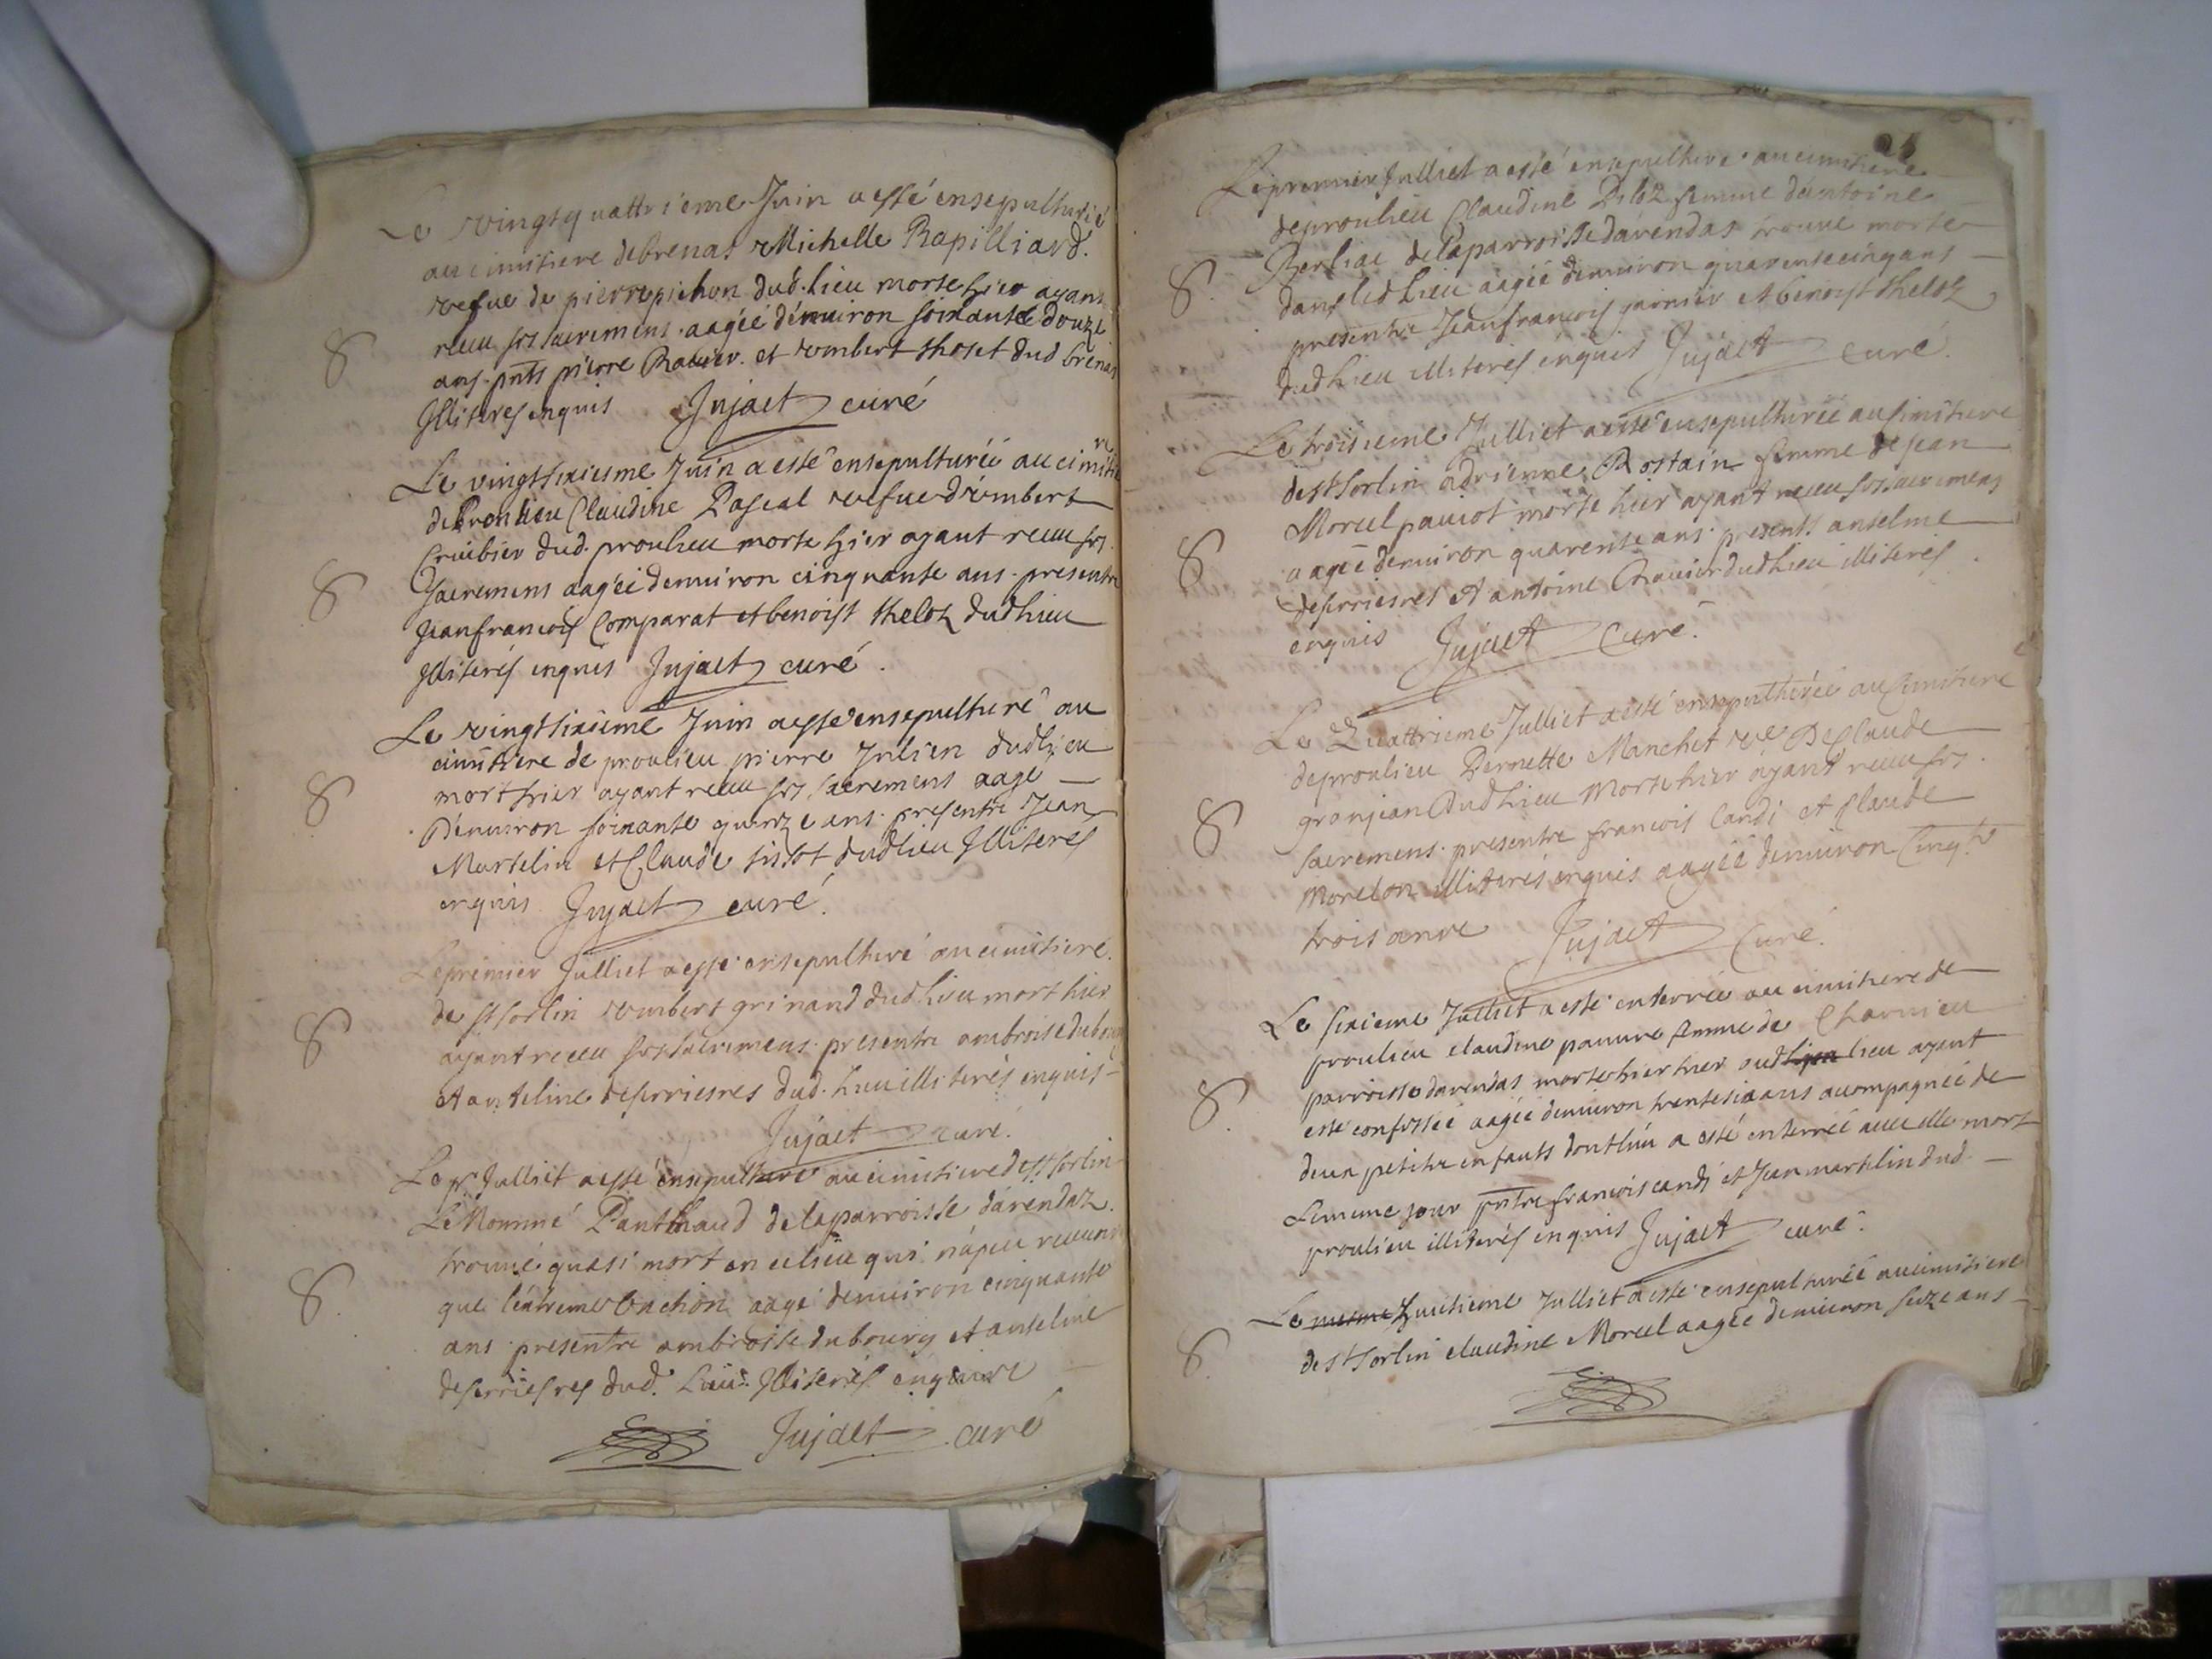 Le vingtquattrieme Juin a esté ensepulturée
au cimitiere de brenas Michelle Rapilliard.
vefue de pierre pichon dud. lieu morte hier ayant
receu ses sacremens aagée d'enuiron soixante douze
ans pnts pierre Rauier et vmbert thoset dud brenas
Illiterés enquis Jujaet curé
S
Le vingtsixiesme Juin a esté ensepulturée au cimitie
re
de Proulieu Claudine Pascal vefue d'vmbert
Crüibier dud. proulieu morte hier ayant receu ses
S
sacremens aagée denuiron cinquante ans presentz
Jeanfrancois Comparat et benoist theloz dudlieu
Illiterés enquis Jujaet curé.
Le vingtsixieme Juin a esté ensepulturé au
cimitiere de proulieu pierre Julien dudlieu
S
mort hier ayant receu ses sacremens aagé
D'enuiron soixante quinze ans presentz Jean
Martelin et Claude tissot dudlieu Illiterés
enquis Jujaet curé.
Le premier Julliet a esté ensepulturé au cimitiere
de st sorlin vmbert grinand dudlieu mort hier
S
ayant receu ses sacremens presentz ambroise dubourg
et anteline deserriesres dud. lieu illiterés enquis
Jujaet curé.
Le pr. Julliet a esté ensepulturé au cimitiere de st sorlin
Le Nommé Panthaud de la parroisse d'arendaz
trouué quasi mort en ce lieu qui n'a peu receuoir
S.
que l'extreme onction aagé denuiron cinquante
ans presentz ambroise dubourg et anteline
deserriesres dud. Lieu Illiterés enquis
Jujaet curé
25
Le premier Julliet a esté ensepulturée au cimitiere
de proulieu Claudine Piloz femme d'antoine
Berliae de la parroisse d'arendas trouué morte
S.
dans led lieu aagée denuiron quarente cinq ans
presentz Jeanfrancois garnier et benoist theloz
dudlieu illiterés enquis Jujaet curé.
Le troisieme Julliet a esté ensepulturée au simitiere
de st sorlin adrienne Rostain femme de jean
Morcel pauiot morte hier ayant receu ses sacremens
S
aagée denuiron quarente ans presents anselme
deserriesres et antoine Rauier dudlieu illiterés
enquis Jujaet Curé.
Le Quattrieme Julliet a esté ensepulturée au simitiere
de proulieu Pernette Manchet vve De Claude
granjean Dudlieu morte hier ayant receu ses
S
sacremens presentz francois Candi et Claude
Morelon illiterés enquis aagée denuiron Cinqte
trois annz Jujaet Curé.
Le sixieme Julliet a esté enterrée au cimitiere de
proulieu claudine pauure femme de Charuieu
parroisse darendas morte hier hier aud lieu ayant
S.
esté confessée aagée denuiron trente six ans acompagnée de
deux petitz enfants dont lun a esté enterré auec elle mort
Le mesme jour pntz francois candi et Jean martelin dud.
proulieu illiterés enquis Jujaet curé.
Le mesme huictieme Julliet a esté ensepulturée au cimitiere
S
de st sorlin claudine Morcel aagée denuiron seize ans